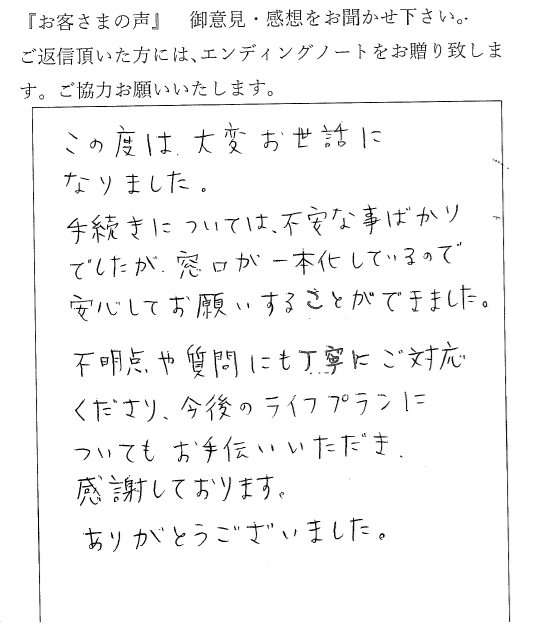 『お客さまの声』　御意見・感想をお聞かせ下さい。
ご返信頂いた方には、エンディングノートをお贈り致しま
す。ご協力お願いいたします。
この度は、大変お世話に
なりました。
手続きについては、不安な事ばかり
でしたが、窓口が一本化しているので
安心してお願いすることができました。
不明点や質問にも丁寧にご対応
くださり、今後のライフプランに
ついてもお手伝いいただき、
感謝しております。
ありがとうございました。